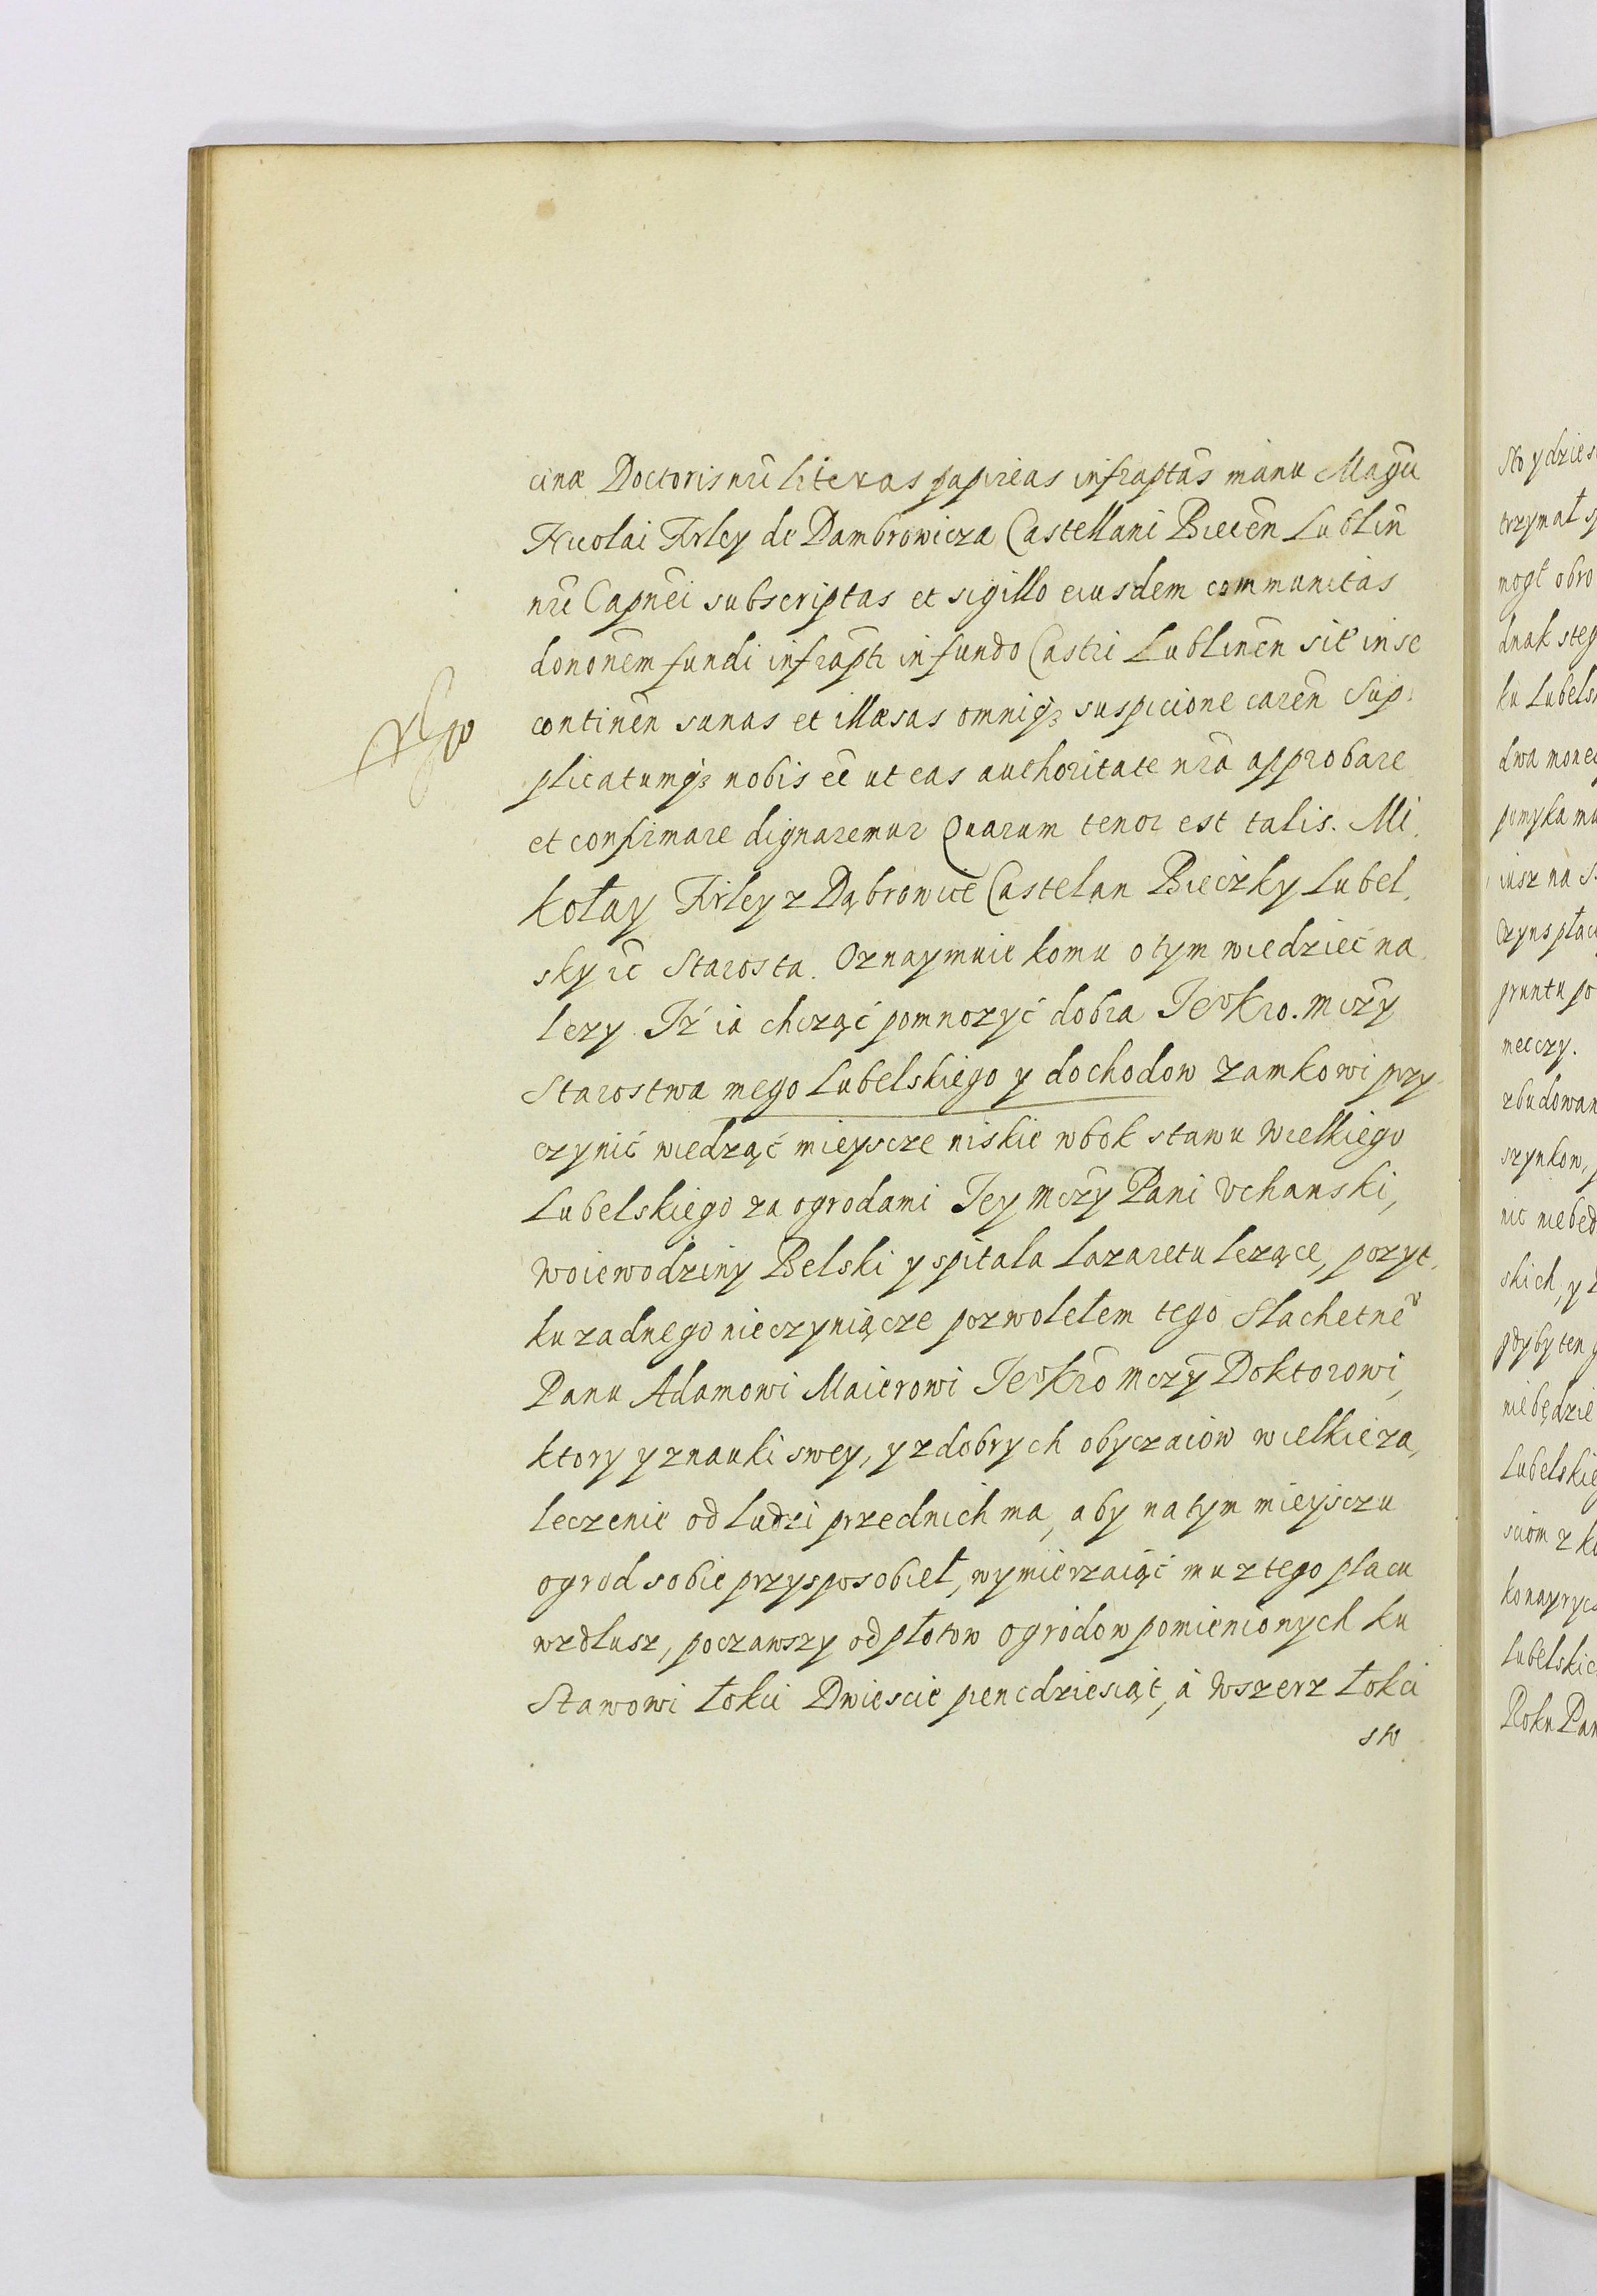 cinæ Doctoris nři literas papireas infraptãs manu Magñi
Nicolai Firley de Dambrowicza Castellani Biecẽn Lublin̄
nři Capnẽi subscriptas et sigillo eiusdem communitas
dononẽm fundi infrapti in fundo Castri Lublinẽn sit in se
continẽn sanas et illæsas omniq3 suspicione carẽn Sup:
plicatumq3 nobis eẽ ut eas authoritate nrã approbare
et confirmare dignaremur Quarum tenor est talis. Mi,
kołay Firley z Dąbrowice Castelan Bieczky Lubel,
sky rc Starosta. Oznaymuie komu o tym wiedziec na,
lezy. Iż ia chcząc pomnozyć dobra Ieº Kro. Mczy
Starostwa mego Lubelskiego y dochodow zamkowi przy,
czynić wiedząć mieyscze niskie wbok stawu wielkiego
Lubelskiego za ogrodami Iey Mczy Pani Uchanski,
Woiewodziny Belski y spitala Lazaretu lezące, pozyt,
ku zadnego nieczyniącze pozwolełem tego Slachetneº
Panu Adamowi Maierowi Ieº Kro Mczy Doktorowi,
ktory y znauki swey, y zdobrych obyczaiow wielkie za,
leczenie od ludzi przednich ma, aby na tym mieysczu
ogrod sobie przysposobieł, wymierzaiąć mu z tego placu
wzdłusz, poczawszy od płotow ogrodow pomienionych ku
Stawowi łokci Dwiescie pencdziesiąt, á wszerz łokci
sto
Sto ydzies
trzymał s
mogł obro
dnak steg
ku Lubels
dwa mone
pomyka
iusz na S
Czyns płac
gruntu po
meczy.
zbudowan
szynkow,
nic niebęd
skich, y
gdyby ten
niebędzie
Lubelskie
sciom z
Lubelskie
Roku Pan